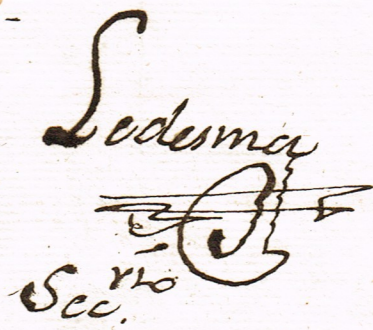 Ledesma
Sec.rio